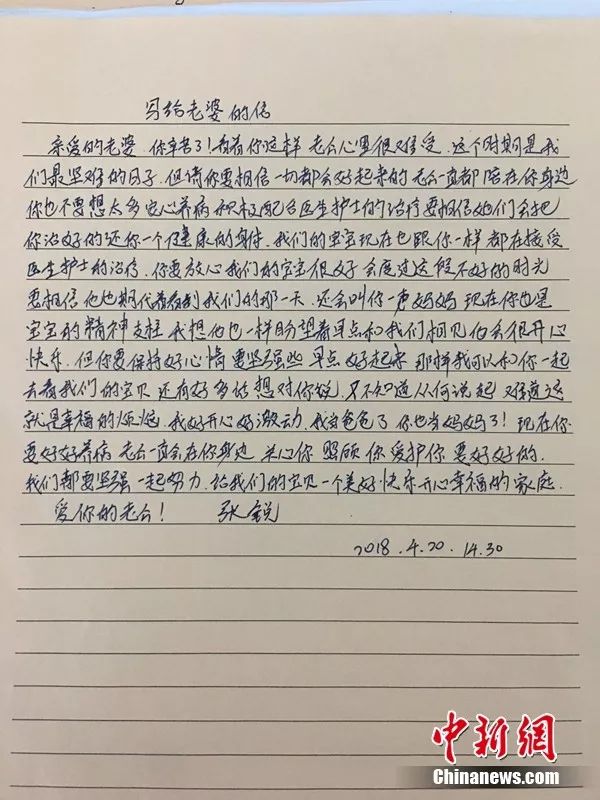 写给老婆的信
亲爱的老婆.你辛苦了!看着你这样 老公心里很难受.这个时期是我
们最坚难的日子.但请你要相信一切都会好起来的老公一直都陪在你身边
你也不要想太多安心养病积极配合医生护士的治疗要相信她们会把
你治好的还你一个健康的身体.我们的宝宝现在也跟你一样都在接受
医生护士的治疗.你要放心我们的宝宝很好会度过这段不好的时光
要相信他他期代着看到我们的那一天.还会叫你一声妈妈 现在你也是
宝宝的精神支柱 我想他也一样盼望着早点和我们相见他会很开心
快乐.但你要保持好心情要坚强些早点好起来 那样我可以和你一起
去看我们的宝贝 还有好多话想对你说.又不知道从何说起 难道这
就是幸福的烦恼.我好开心好激动.我当爸爸了你也当妈妈了!现在你
要好好养病 老公一直会在你身边 关心你 照顾你 爱护你要好好的.
我们都要坚强一起努力.给我们的宝贝一个美好快乐开心幸福的家庭.
爱你的老公! 张锐
2018.4.20.14.30
中新網
Chinanews.com